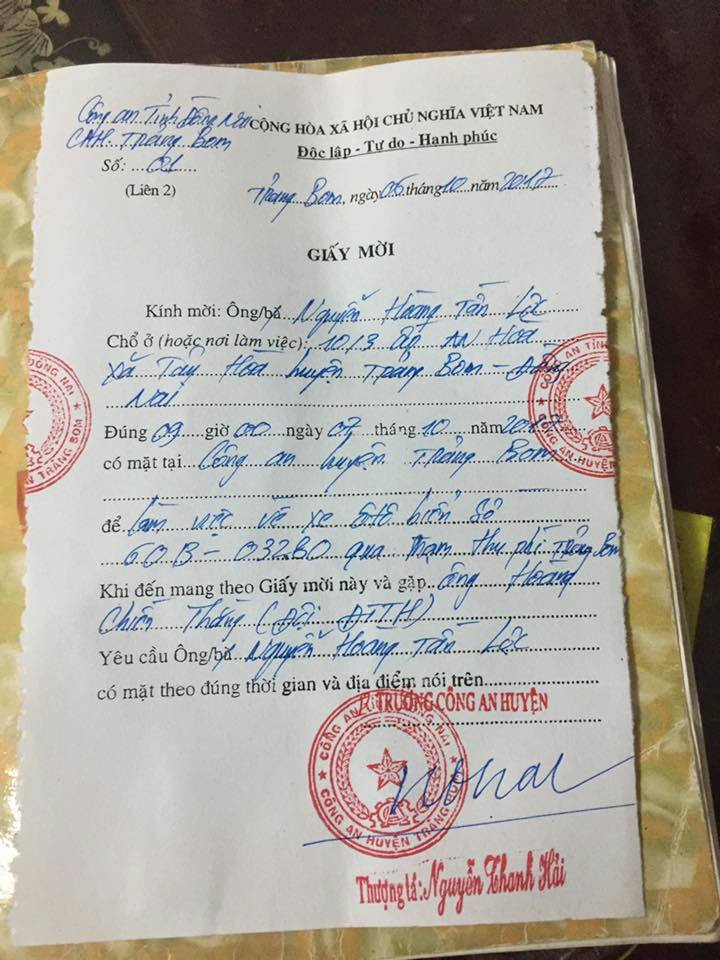 Công an Tỉnh Đồng Nai
CỘNG HÒA XÃ HỘI CHỦ NGHĨA VIỆT NAM
CAH. Trảng Bom
Độc lập - Tự do - Hạnh phúc
Số: ...02......
(Liên 2)
Trảng Bom, ngày 06 tháng 10 năm 2017
GIẤY MỜI
Kính mời: Ông/bà Nguyễn Hoàng Tấn Lộc
Chổ ở (hoặc nơi làm việc): 10/3 ấp AN Hoà
xã Tây Hoà huyện Trảng Bom - Đồng
Nai
Đúng 09 giờ 00 ngày 07 tháng 10 năm 2017
có mặt tại Công an huyện Trảng Bom
để làm việc về xe ôtô biển số
60B - 03280 qua trạm thu phí Trảng Bom
Khi đến mang theo Giấy mời này và gặp ông Hoàng
Chiến Thắng (Đội ĐTTH)
Yêu cầu Ông/bà Nguyễn Hoàng Tấn Lộc
có mặt theo đúng thời gian và địa điểm nói trên
TRƯỞNG CÔNG AN HUYỆN
CÔNG AN TỈNH ĐỒNG NAI
CÔNG AN HUYỆN TRẢNG BOM
Thượng tá: Nguyễn Thanh Hải
ĐỒNG NAI
AN TRẢNG BOM
CÔNG AN TỈNH
CÔNG AN HUYỆN